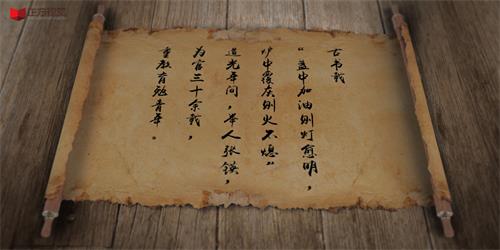 正方视觉
古书载
“盏中加油则灯愈明，
炉中覆灰则火不熄”
道光年间，举人张锳，
为官三十余载，
重教育勉青年。